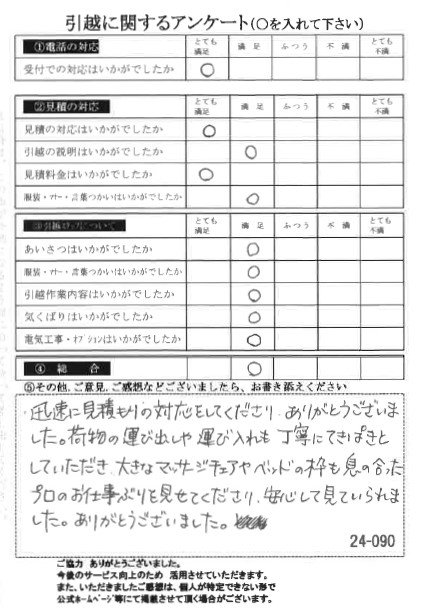 引越に関するアンケート(○を入れて下さい)
①電話の対応 とても満足 満足 ふつう 不満 とても不満
受付での対応はいかがでしたか ○
②見積の対応 とても満足 満足 ふつう 不満 とても不満
見積の対応はいかがでしたか ○
引越の説明はいかがでしたか ○
見積料金はいかがでしたか ○
服装・マナー・言葉つかいはいかがでしたか ○
③引越 について とても満足 満足 ふつう 不満 とても不満
あいさつはいかがでしたか ○
服装・マナー・言葉つかいはいかがでしたか ○
引越作業内容はいかがでしたか ○
気くばりはいかがでしたか ○
電気工事・オプションはいかがでしたか ○
④ 総合 ○
⑤その他、ご意見、ご感想などございましたら、お書き添えください
迅速に見積もりの対応をしてくださり、ありがとうございま
した。荷物の運び出しや運び入れも丁寧にてきぱきと
していただき、大きなマッサージチェアやベッドの枠も息の合った
プロのお仕事ぶりを見せてくださり、安心して見ていられま
した。ありがとうございました。
24-090
ご協力 ありがとうございました。
今後のサービス向上のため 活用させていただきます。
また、いただきましたご感想は、個人が特定できない形で
公式ホームページ等にて掲載させて頂く場合がございます。